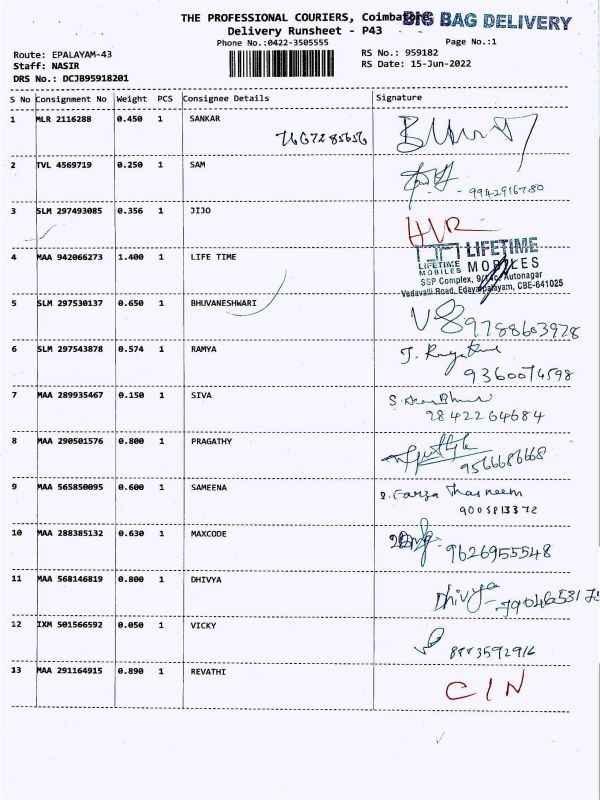 THE PROFESSIONAL COURIERS, Coimbatore
BIG BAG DELIVERY
Delivery Runsheet - P43
Phone No.:0422-3505555
Page No.:1
Route: EPALAYAM-43
RS No.: 959182
Staff: NASIR
RS Date: 15-Jun-2022
DRS No.: DCJB95918201
S No Consignment No Weight PCS Consignee Details Signature
1 MLR 2116288 0.450 1 SANKAR
2 TVL 4569719 0.250 1 SAM
9942916780
3 SLM 297493085 0.356 1 JIJO
4 MAA 942066273 1.400 1 LIFE TIME
LIFETIME MOBILES
LIFETIME
MOBILES
Vadavalli Road, Edayarpalayam, CBE-641025
5 SLM 297530137 0.650 1 BHUVANESHWARI
9788603928
6 SLM 297543878 0.574 1 RAMYA
9360074598
7 MAA 289935467 0.150 1 SIVA
8 MAA 290501576 0.800 1 PRAGATHY
9566686668
9 MAA 565850095 0.600 1 SAMEENA
S. Farza Thasneem
9005813372
10 MAA 288385132 0.630 1 MAXCODE
9626955548
11 MAA 568146819 0.800 1 DHIVYA
Dhivya
12 IXM 501566592 0.050 1 VICKY
8883592916
13 MAA 291164915 0.890 1 REVATHI
C/N